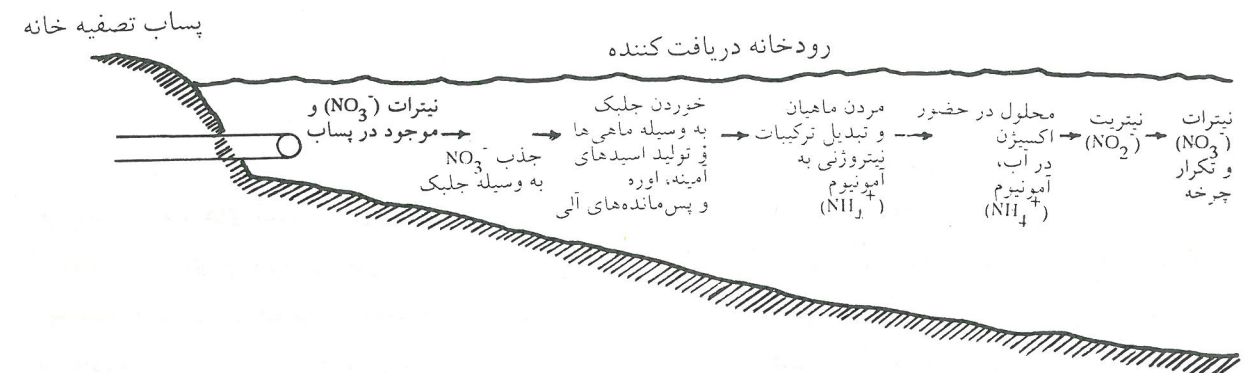 پساب تصفیه خانه
رودخانه دریافت کننده
نیترات (NO3-) و
موجود در پساب
جذب NO3-
به وسیله جلبک
خوردن جلبک
به وسیله ماهی‌ها
و تولید اسیدهای
آمینه، اوره
و پس‌مانده‌های آلی
مردن ماهیان
و تبدیل ترکیبات
نیتروژنی به
آمونیوم
(NH4+)
محلول در حضور
اکسیژن
در آب،
آمونیوم
(NH4+)
نیتریت
(NO2-)
نیترات
(NO3-)
و تکرار
چرخه